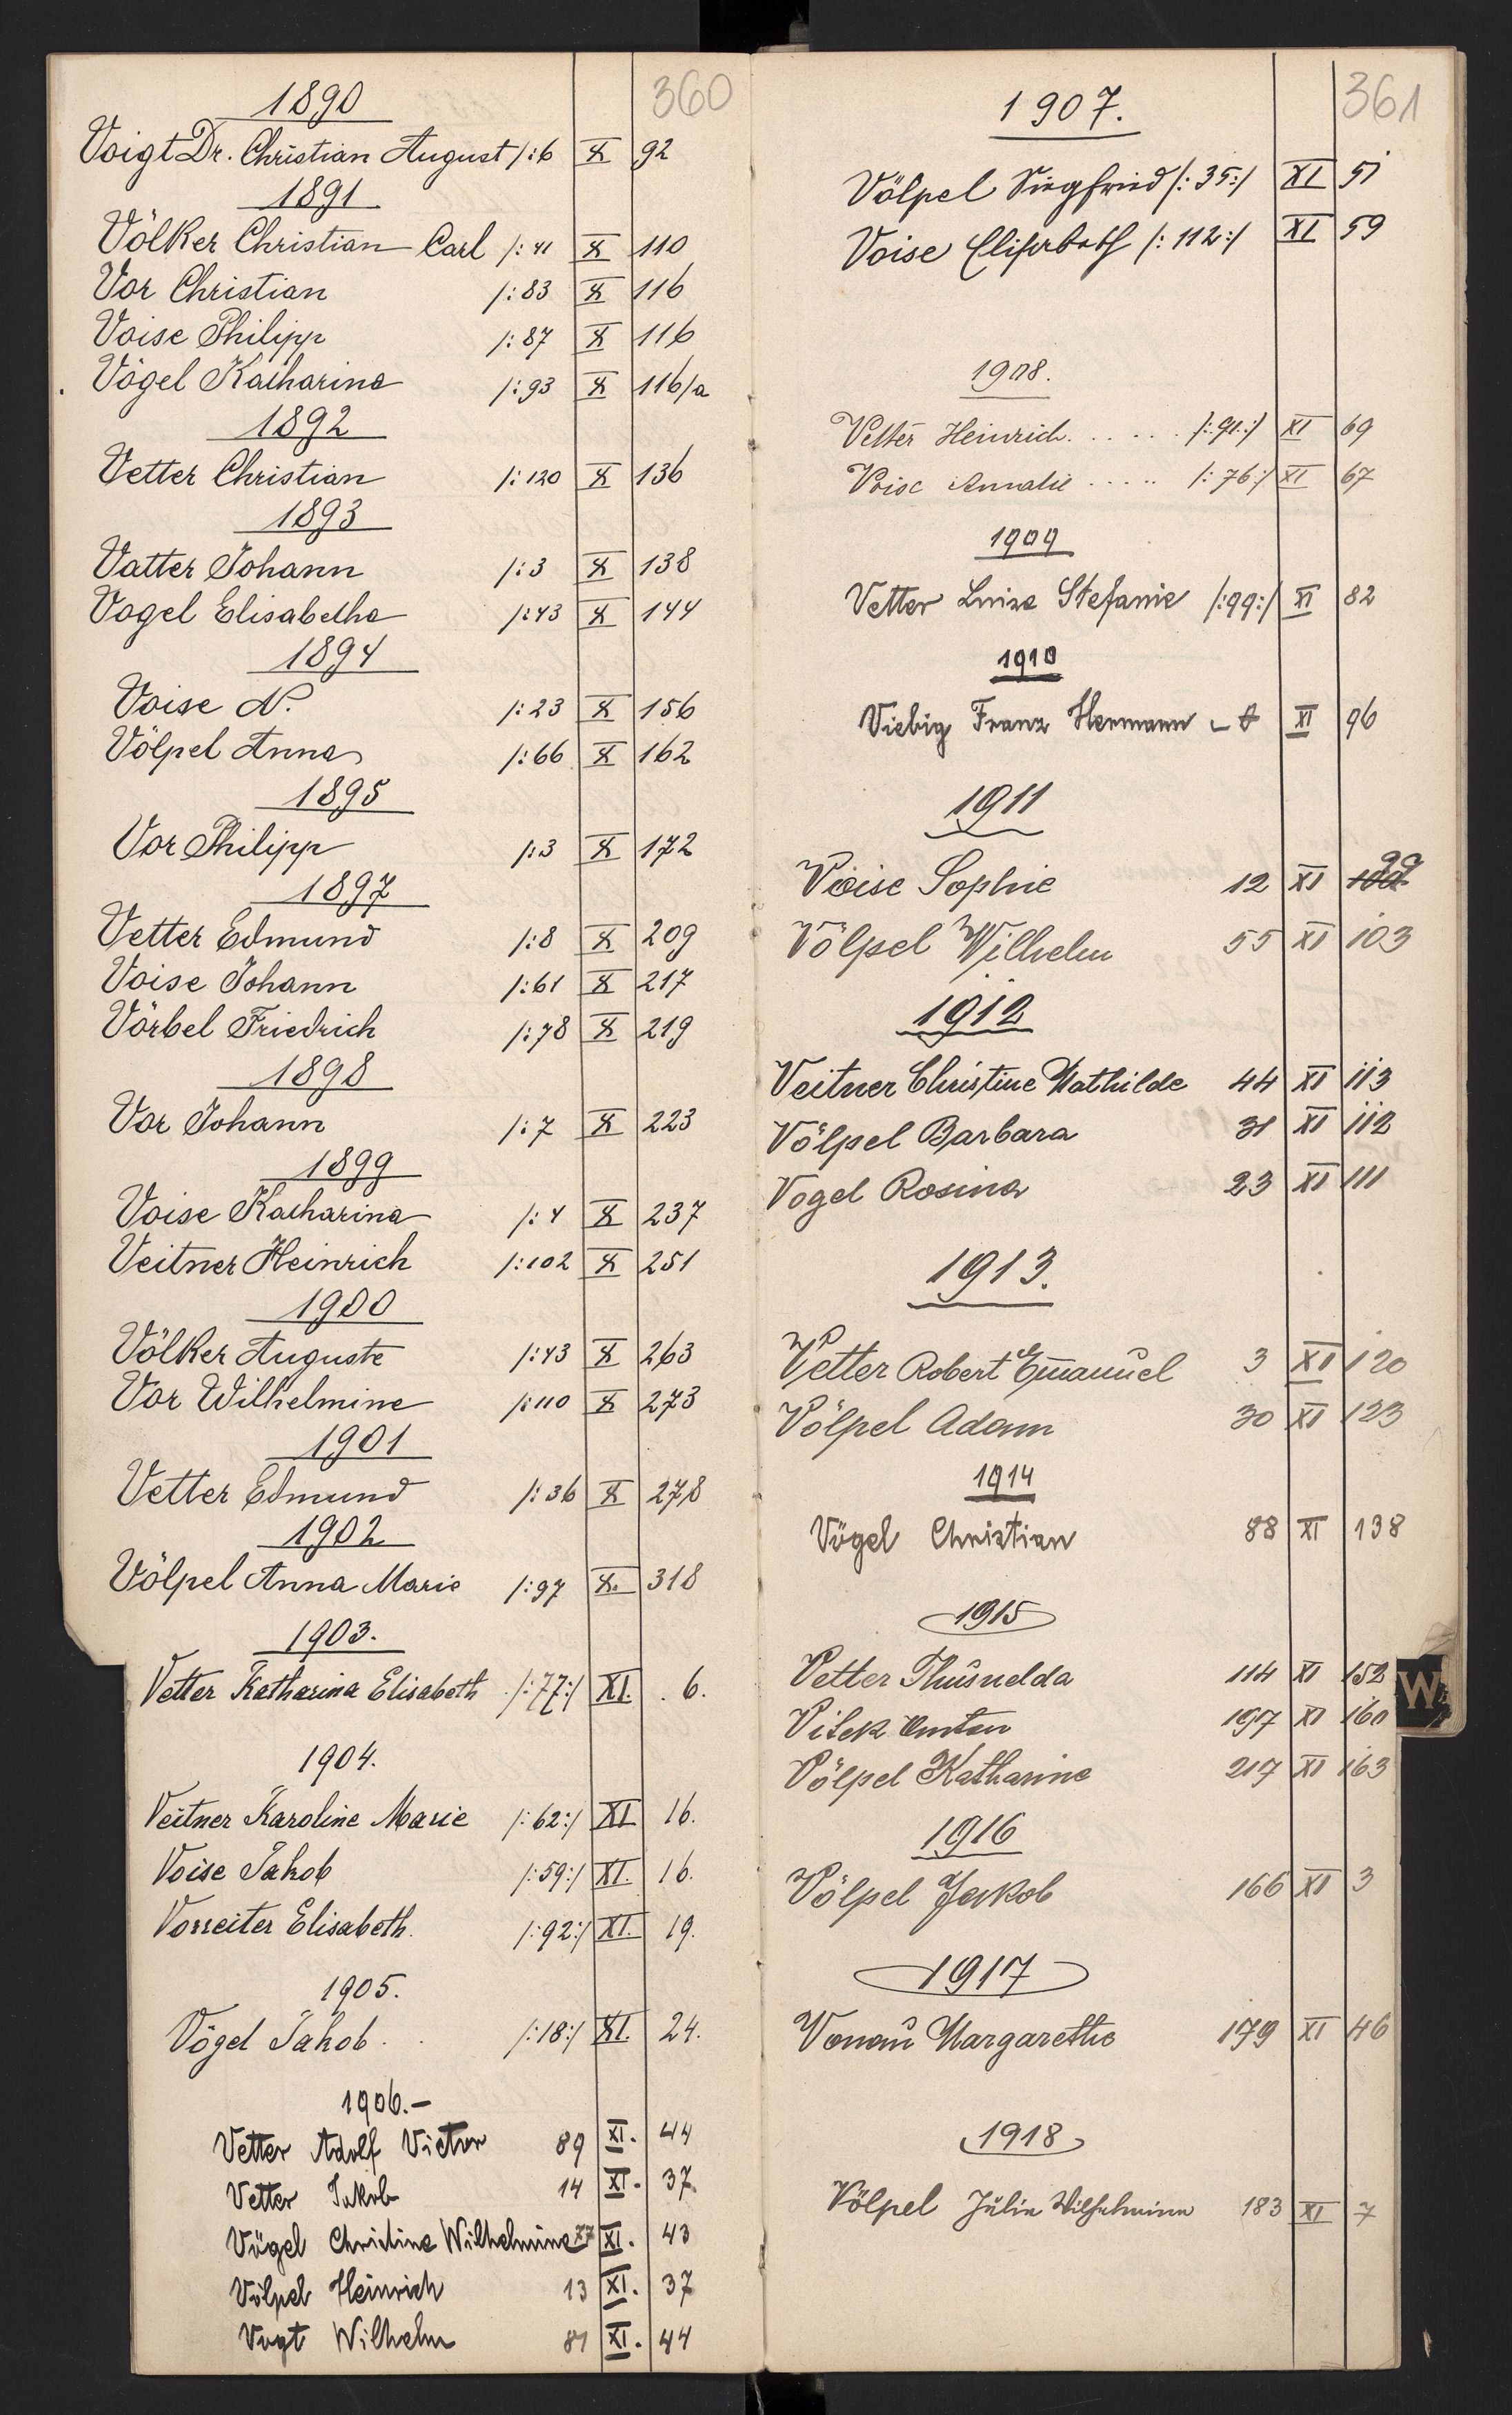 360
1890
Voigt Dr. Christian August /:6 X 92
1891
Völker Christian Carl /: 41 X 110
Vor Christian /: 83 X 116
Voise Philipp /: 87 X 116
Vögel Katharina /: 93 X 116/a
1892
Vetter Christian /: 120 X 136
1893
Vatter Johann /: 3 X 138
Vogel Elisabetha /: 43 X 144
1894
Voise N. /: 23 X 156
Völpel Anna /: 66 X 162
1895
Vor Philipp /: 3 X 172
1897
Vetter Edmund /: 8 X 209
Voise Johann /: 61 X 217
Vörbel Friedrich /: 78 X 219
1898
Vor Johann /: 7 X 223
1899
Voise Katharina /: 4 X 237
Veitner Heinrich /: 102 X 251
1900
Völker Auguste /: 43 X 263
Vor Wilhelmine /: 110 X 273
1901
Vetter Edmund /: 36 X 278
1902
Völpel Anna Marie /: 97 X. 318
1903.
Vetter Katharina Elisabeth /:77:/ XI. 6.
1904.
Veitner Karoline Marie /: 62:/ XI 16.
Voise Jakob /:59:/ XI. 16.
Vorreiter Elisabeth. /:92:/ XI. 19.
1905.
Vögel Jakob. /:18:/ XI. 24.
1906.-
Vetter Adolf Victor 89 XI. 44
Vetter Jakob 14 XI. 37
Vögel Christine Wilhelmine 77 XI. 43
Völpel Heinrich 13 XI. 37
Vogt Wilhelm 81 XI. 44
361
1907.
Völpel Siegfried /: 35:/ XI 51
Voise Elisabeth /: 112:/ XI 59
1908.
Vetter Heinrich. . . . . . /:91:/ XI 69
Voise Amalie ..... /: 76:/ XI 67
1909
Vetter Luise Stefanie /:99:/ XI 82
1910
Viebig Franz Hermann XI 96
1911
Voise Sophie 12 XI 99
Völpel Wilhelm 55 XI 103
1912
Veitner Christine Mathilde 44 XI 113
Völpel Barbara 31 XI 112
Vogel Rosina 23 XI 111
1913.
Vetter Robert Emanuel 3 XI 120
Völpel Adam 30 XI 123
1914
Vögel Christian 88 XI 138
1915
Vetter Thusnelda 114 XI 152
Vitek Anton 197 XI 160
Völpel Katharine 217 XI 163
W
1916
Völpel Jakob 166 XII 3
1917
Vonau Margarethe 179 XI 46
1918
Völpel Julie Wilhelmine 183 XI 7